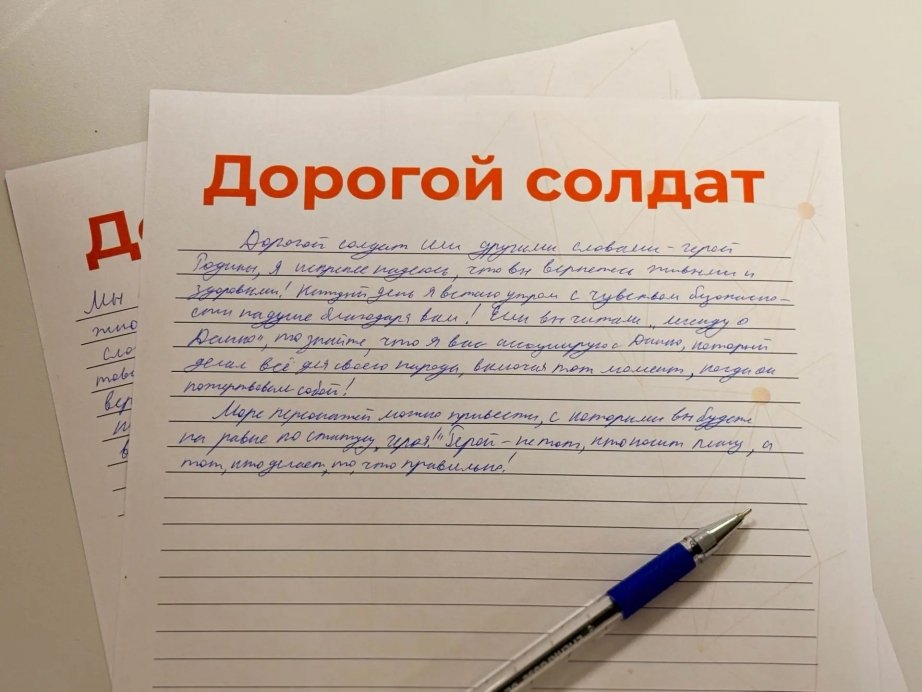 Дорогой солдат
Дорогой солдат или другими словами - герой
Родины, я искренне надеюсь, что вы вернетесь живыми и
здоровыми! Каждый день я встаю утром с чувством безопасно-
сти на душе благодаря вам! Если вы читали „легенду о
Данко", то знайте, что я вас ассоциирую с Данко, который
делал всё для своего народа, включая тот момент, когда он
пожертвовал собой!
Море персонажей можно привести, с которыми вы будете
на равне по статусу „героя!" Герой - не тот, кто носит плащ, а
тот, кто делает, то, что правильно!
До
Мы